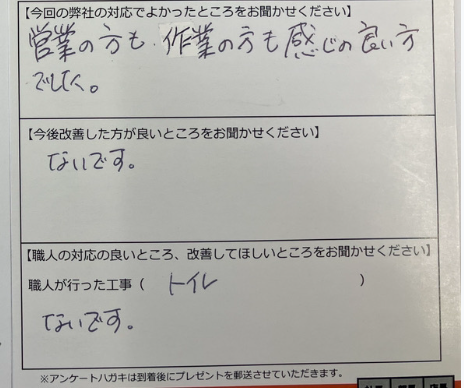 【今回の弊社の対応でよかったところをお聞かせください】
営業の方も、作業の方も感じの良い方
でした。
【今後改善した方が良いところをお聞かせください】
ないです。
【職人の対応の良いところ、改善してほしいところをお聞かせください】
職人が行った工事（ トイレ ）
ないです。
※アンケートハガキは到着後にプレゼントを郵送させていただきます。